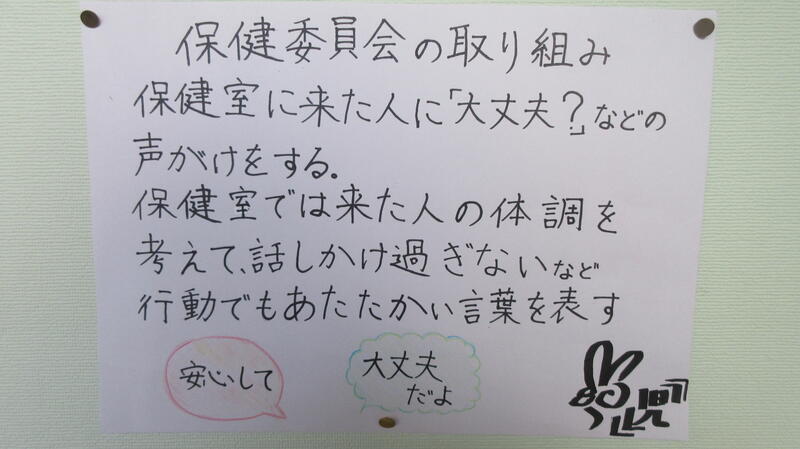 保健委員会の取り組み
保健室に来た人に「大丈夫?」などの
声がけをする.
保健室では来た人の体調を
考えて、話しかけ過ぎないなど
行動でもあたたかい言葉を表す
安心して
大丈夫
だよ